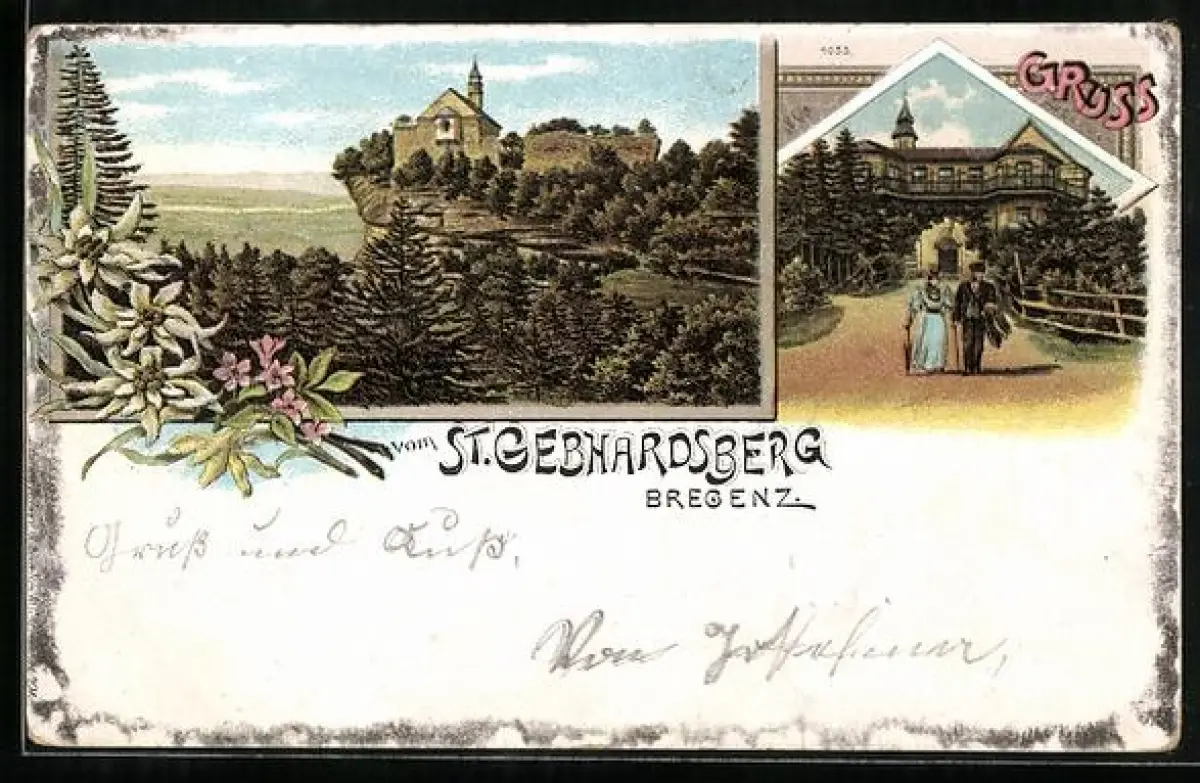 1033.
GRUSS
vom
ST. GEBHARDSBERG
BREGENZ.
Gruß und Kuß,
Von